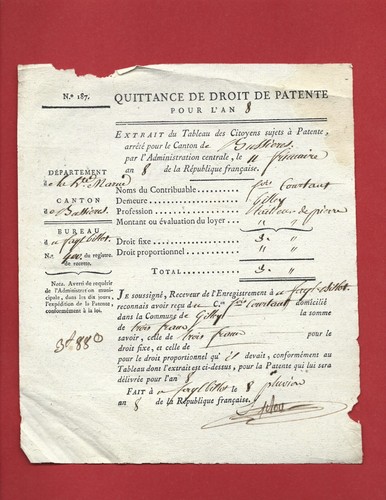 N.º 187.
QUITTANCE DE DROIT DE PATENTE
POUR L'AN 8
EXTRAIT du Tableau des Citoyens sujets à Patente,
arrêté pour le Canton de Bussières
par l'Administration centrale, le 11 frimaire
an 8 de la République française.
DÉPARTEMENT
d e la h.te Marne
CANTON
d e Bussières
BUREAU
d e fayl billot
N.º 400. du registre
de recette.
Nota. Avertir de requérir
de l'Administration muni-
cipale, dans les dix jours,
l'expédition de la Patente,
conformément à la loi.
3f. 88 0
Noms du Contribuable Courtaut
Demeure Gilley
Profession de pierre
Montant ou évaluation du loyer " "
Droit fixe 3. "
Droit proportionnel " "
TOTAL 3. "
JE soussigné, Receveur de l'Enregistrement à fayl billot
reconnais avoir reçu de C.en Courtaut domicilié
dans la Commune de Gilley la somme
de trois francs
savoir, celle de trois francs pour le
droit fixe, et celle de
pour le droit proportionnel qu' il devait, conformément au
Tableau dont l'extrait est ci-dessus, pour la Patente qui lui sera
délivrée pour l'an 8
FAIT à fayl billot le 8 pluviose
an 8 de la République française.